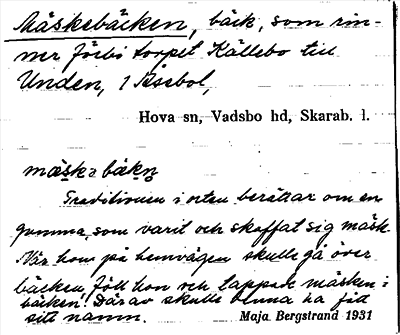 Mäskebäcken, bäck, som rin-
ner förbi torpet Källebo till
Unden, 1 Åsebol,
Hova sn, Vadsbo hd, Skarab. l.
mäska bäkn
Traditionen i orten berättar om en
gumma, som varit och skaffat sig mäsk.
När hon på hemvägen skulle gå över
bäcken, föll hon och tappade mäsken i
bäcken. Därav skulle denna ha fått
sitt namn. Maja Bergstrand 1931